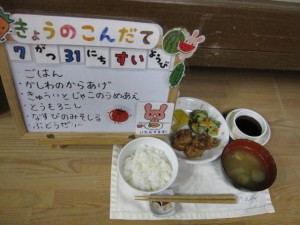 きょうのこんだて
7 がつ 31 にち すい ようび
ごはん
・かしわのからあげ
・きゅういとじゃこのうめあえ
・とうもろこし
・なすびのみそしる
・ぶどうゼリー